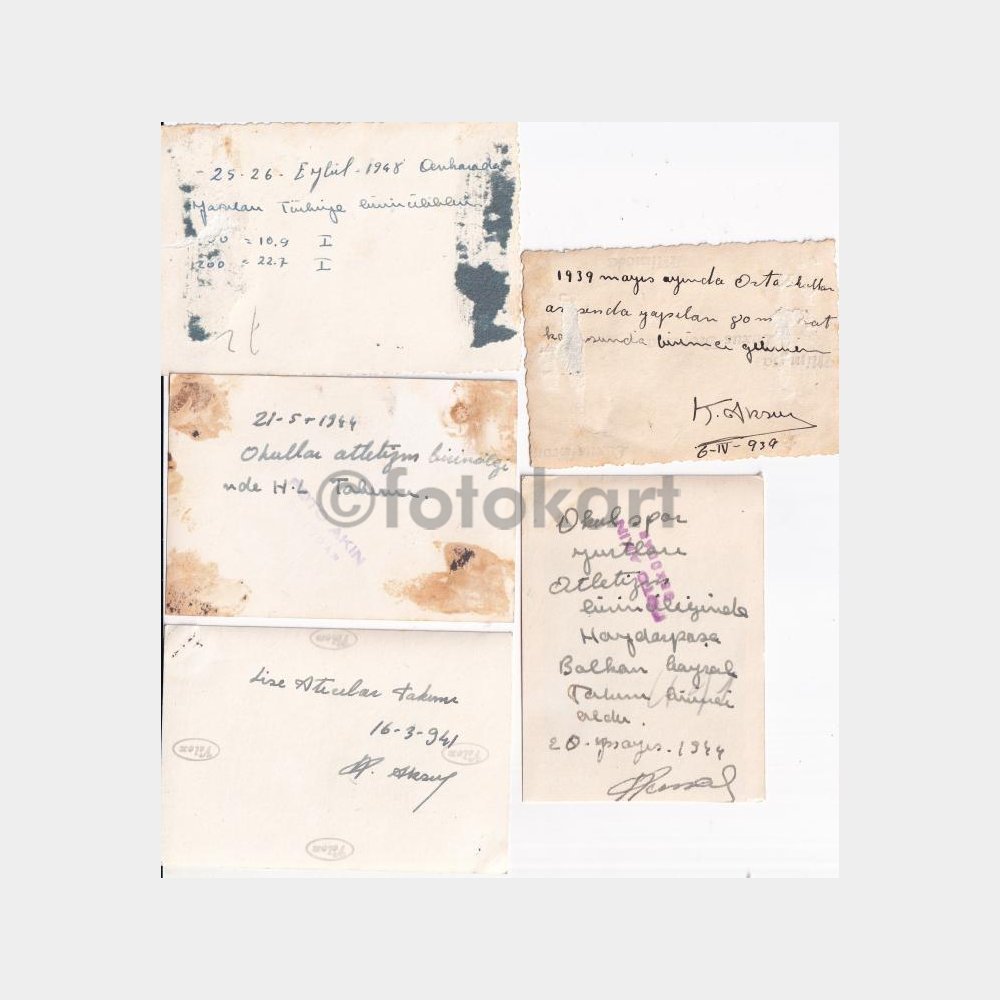 - 25-26- Eylül - 1948 Ankarada
yapılan Türkiye birincilikleri
100 = 10.9 I
200 = 22.7 I
1939 mayıs ayında Orta okullar
arasında yapılan
birinci gelmem
K. Aksuy
6-IV-939
21-5-1944
Okullar atletizm birinciliği
nde H.L Takımı.
AKIN
©fotokart
Okul spor
yurtları
Atletizm
birinciliğinde
Haydarpaşa
Balkan bayrak
Takımı birinci
oldu.
20-mayıs-1944
FOTO AKIN
Lise Atıcılar takımı
16-3-941
K. Aksuy
Velox
Velox
Velox
Velox